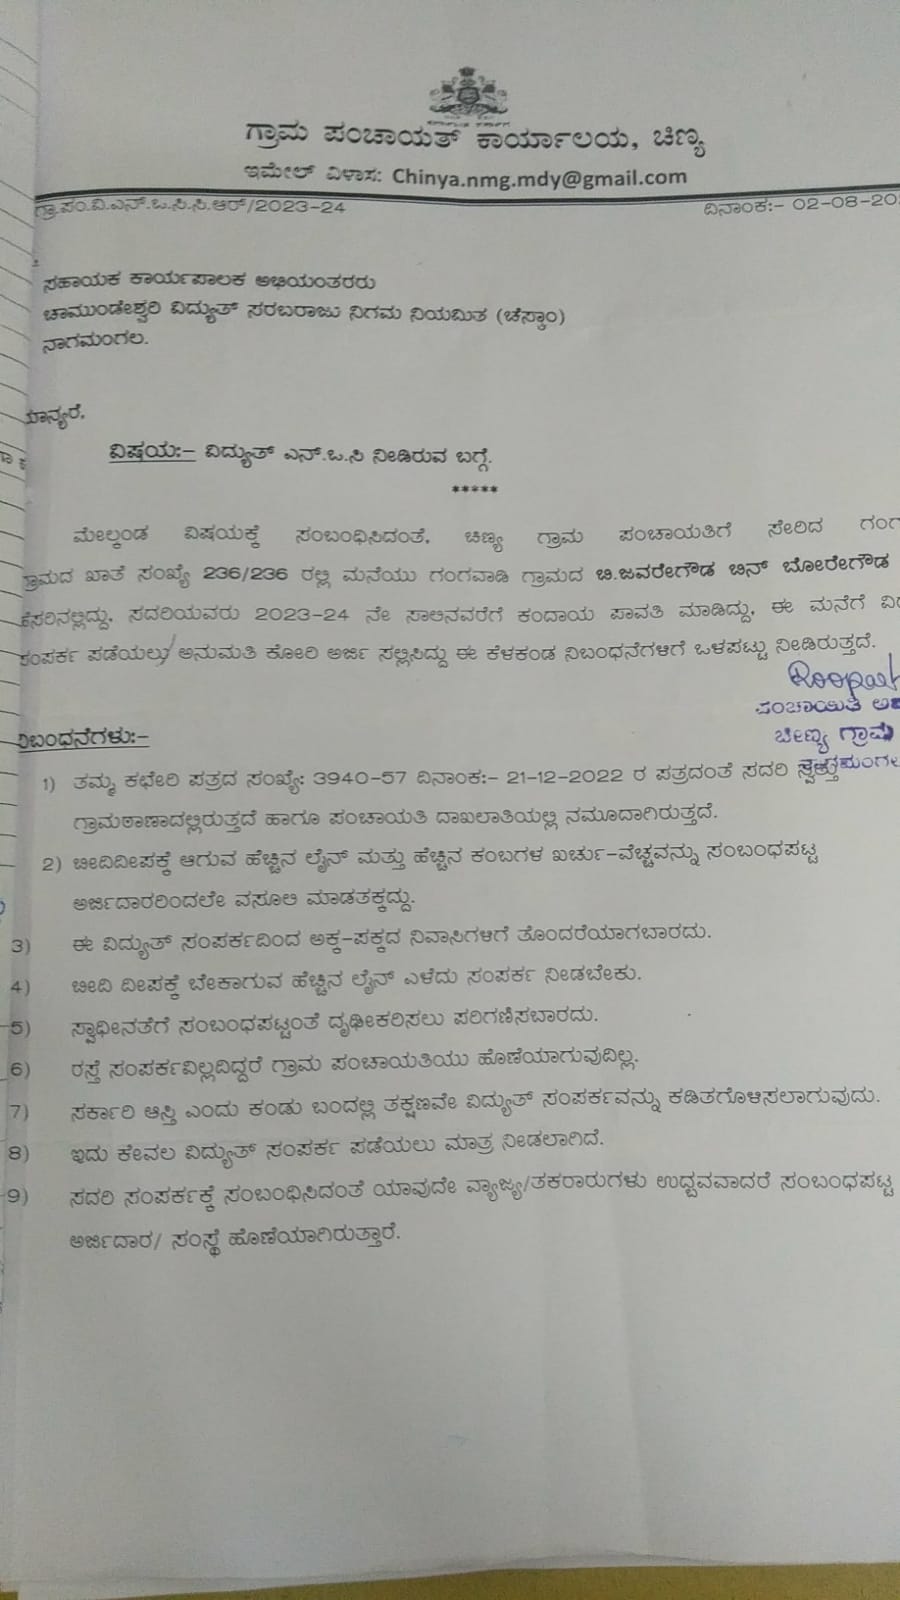 ಗ್ರಾಮ ಪಂಚಾಯತ್ ಕಾರ್ಯಾಲಯ, ಚಿಣ್ಯ
ಇಮೇಲ್ ವಿಳಾಸ: Chinya.nmg.mdy@gmail.com
ಗ್ರಾ.ಪಂ.ವಿ.ಎನ್.ಒ.ಸಿ.ಸಿ.ಆರ್/2023-24 ದಿನಾಂಕ:- 02-08-20
ಸಹಾಯಕ ಕಾರ್ಯಪಾಲಕ ಅಭಿಯಂತರರು
ಚಾಮುಂಡೇಶ್ವರಿ ವಿದ್ಯುತ್ ಸರಬರಾಜು ನಿಗಮ ನಿಯಮಿತ (ಚೆಸ್ಕಾಂ)
ನಾಗಮಂಗಲ.
ಮಾನ್ಯರೆ,
ವಿಷಯ:- ವಿದ್ಯುತ್ ಎನ್.ಒ.ಸಿ ನೀಡಿರುವ ಬಗ್ಗೆ.
*****
ಮೇಲ್ಕಂಡ ವಿಷಯಕ್ಕೆ ಸಂಬಂಧಿಸಿದಂತೆ, ಚಿಣ್ಯ ಗ್ರಾಮ ಪಂಚಾಯತಿಗೆ ಸೇರಿದ ಗಂಗ
ಗ್ರಾಮದ ಖಾತೆ ಸಂಖ್ಯೆ 236/236 ರಲ್ಲಿ ಮನೆಯು ಗಂಗವಾಡಿ ಗ್ರಾಮದ ಬಿ.ಜವರೇಗೌಡ ಬಿನ್ ಬೋರೇಗೌಡ
ಹೆಸರಿನಲ್ಲಿದ್ದು, ಸದರಿಯವರು 2023-24 ನೇ ಸಾಲಿನವರೆಗೆ ಕಂದಾಯ ಪಾವತಿ ಮಾಡಿದ್ದು, ಈ ಮನೆಗೆ ವಿದ
ಸಂಪರ್ಕ ಪಡೆಯಲು ಅನುಮತಿ ಕೋರಿ ಅರ್ಜಿ ಸಲ್ಲಿಸಿದ್ದು ಈ ಕೆಳಕಂಡ ನಿಬಂಧನೆಗಳಿಗೆ ಒಳಪಟ್ಟು ನೀಡಿರುತ್ತದೆ.
ಪಂಚಾಯಿತಿ
ಚೀಣ್ಯ ಗ್ರಾಮ
ನಿಬಂಧನೆಗಳು:-
1) ತಮ್ಮ ಕಛೇರಿ ಪತ್ರದ ಸಂಖ್ಯೆ: 3940-57 ದಿನಾಂಕ:- 21-12-2022 ರ ಪತ್ರದಂತೆ ಸದರಿ ಸ್ವತ್ತು
ಗ್ರಾಮಠಾಣಾದಲ್ಲಿರುತ್ತದೆ ಹಾಗೂ ಪಂಚಾಯತಿ ದಾಖಲಾತಿಯಲ್ಲಿ ನಮೂದಾಗಿರುತ್ತದೆ.
2) ಬೀದಿದೀಪಕ್ಕೆ ಆಗುವ ಹೆಚ್ಚಿನ ಲೈನ್ ಮತ್ತು ಹೆಚ್ಚಿನ ಕಂಬಗಳ ಖರ್ಚು-ವೆಚ್ಚವನ್ನು ಸಂಬಂಧಪಟ್ಟ
ಅರ್ಜಿದಾರರಿಂದಲೇ ವಸೂಲಿ ಮಾಡತಕ್ಕದ್ದು.
3) ಈ ವಿದ್ಯುತ್ ಸಂಪರ್ಕದಿಂದ ಅಕ್ಕ-ಪಕ್ಕದ ನಿವಾಸಿಗಳಿಗೆ ತೊಂದರೆಯಾಗಬಾರದು.
4) ಬೀದಿ ದೀಪಕ್ಕೆ ಬೇಕಾಗುವ ಹೆಚ್ಚಿನ ಲೈನ್ ಎಳೆದು ಸಂಪರ್ಕ ನೀಡಬೇಕು.
5) ಸ್ವಾಧೀನತೆಗೆ ಸಂಬಂಧಪಟ್ಟಂತೆ ದೃಢೀಕರಿಸಲು ಪರಿಗಣಿಸಬಾರದು.
6) ರಸ್ತೆ ಸಂಪರ್ಕವಿಲ್ಲದಿದ್ದರೆ ಗ್ರಾಮ ಪಂಚಾಯತಿಯು ಹೊಣೆಯಾಗುವುದಿಲ್ಲ.
7) ಸರ್ಕಾರಿ ಆಸ್ತಿ ಎಂದು ಕಂಡು ಬಂದಲ್ಲಿ ತಕ್ಷಣವೇ ವಿದ್ಯುತ್ ಸಂಪರ್ಕವನ್ನು ಕಡಿತಗೊಳಿಸಲಾಗುವುದು.
8) ಇದು ಕೇವಲ ವಿದ್ಯುತ್ ಸಂಪರ್ಕ ಪಡೆಯಲು ಮಾತ್ರ ನೀಡಲಾಗಿದೆ.
9) ಸದರಿ ಸಂಪರ್ಕಕ್ಕೆ ಸಂಬಂಧಿಸಿದಂತೆ ಯಾವುದೇ ವ್ಯಾಜ್ಯ/ತಕರಾರುಗಳು ಉದ್ಭವವಾದರೆ ಸಂಬಂಧಪಟ್ಟ
ಅರ್ಜಿದಾರ/ ಸಂಸ್ಥೆ ಹೊಣೆಯಾಗಿರುತ್ತಾರೆ.